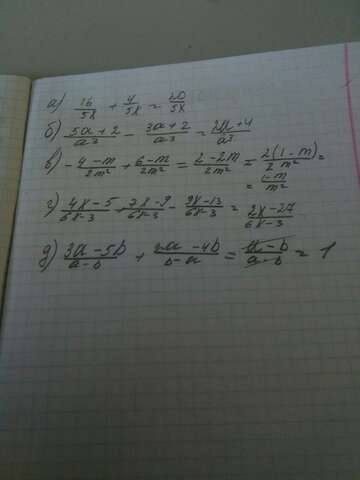 а) 16/5x + 4/5x = 20/5x
б) 5a+2/a³ - 3a+2/a³ = 2a+4/a³
в) -4-m/2m² + 6-m/2m² = 2-2m/2m² = 2(1-m)/2m² =
= 1-m/m²
г) 4x-5/6x-3 + 7x-9/6x-3 - 9x-13/6x-3 = 2x-27/6x-3
д) 3a-5b/a-b + 2a-4b/b-a = a-b/a-b = 1